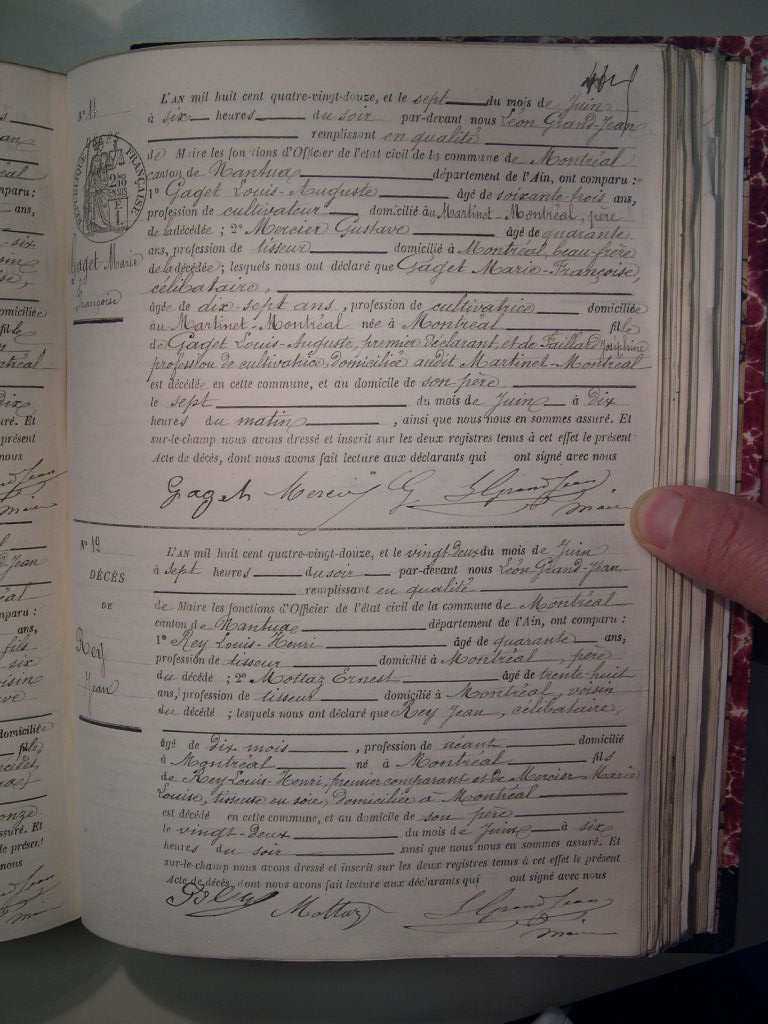 N° 11
L'AN mil huit cent quatre-vingt-douze, et le sept du mois de Juin
à six heures du soir par-devant nous Léon Grand-Jean
remplissant en qualité
de Maire les fonctions d'Officier de l'état civil de la commune de Montréal
canton de Nantua département de l'Ain, ont comparu :
1° Gaget Louis-Auguste âgé de soixante-trois ans,
profession de cultivateur domicilié au Martinet-Montréal, père
de la décédée ; 2° Mercier Gustave âgé de quarante
ans, profession de tisseur domicilié à Montréal, beau-frère
de la décédée ; lesquels nous ont déclaré que Gaget Marie-Françoise,
célibataire,
âgée de dix-sept ans, profession de cultivatrice domiciliée
au Martinet-Montréal née à Montréal fille
de Gaget Louis-Auguste, premier déclarant, et de Faillard Joséphine
profession de cultivatrice, domiciliée audit Martinet-Montréal
est décédée en cette commune, et au domicile de son père
le sept du mois de Juin à dix
heures du matin, ainsi que nous nous en sommes assuré. Et
sur-le-champ nous avons dressé et inscrit sur les deux registres tenus à cet effet le présent
Acte de décès, dont nous avons fait lecture aux déclarants qui ont signé avec nous
Gaget Mercier G LGrandJean
maire
RÉPUBLIQUE FRANÇAISE
Gaget Marie
Françoise
N° 12
DÉCÈS
DE
Rey
Jean
L'AN mil huit cent quatre-vingt-douze, et le vingt-deux du mois de Juin
à sept heures du soir par-devant nous Léon Grand-Jean
remplissant en qualité
de Maire les fonctions d'Officier de l'état civil de la commune de Montréal
canton de Nantua département de l'Ain, ont comparu :
1° Rey Louis-Henri âgé de quarante ans,
profession de tisseur domicilié à Montréal, père
du décédé ; 2° Mottaz Ernest âgé de trente huit
ans, profession de tisseur domicilié à Montréal, voisin
du décédé ; lesquels nous ont déclaré que Rey Jean, célibataire,
âgé de dix mois, profession de néant domicilié
à Montréal né à Montréal fils
de Rey Louis-Henri, premier comparant et de Mercier Marie
Louise, tisseuse en soie, domiciliée à Montréal
est décédé en cette commune, et au domicile de son père
le vingt-deux du mois de Juin à six
heures du soir ainsi que nous nous en sommes assuré. Et
sur-le-champ nous avons dressé et inscrit sur les deux registres tenus à cet effet le présent
Acte de décès, dont nous avons fait lecture aux déclarants qui ont signé avec nous
Mottaz LGrandJean
maire